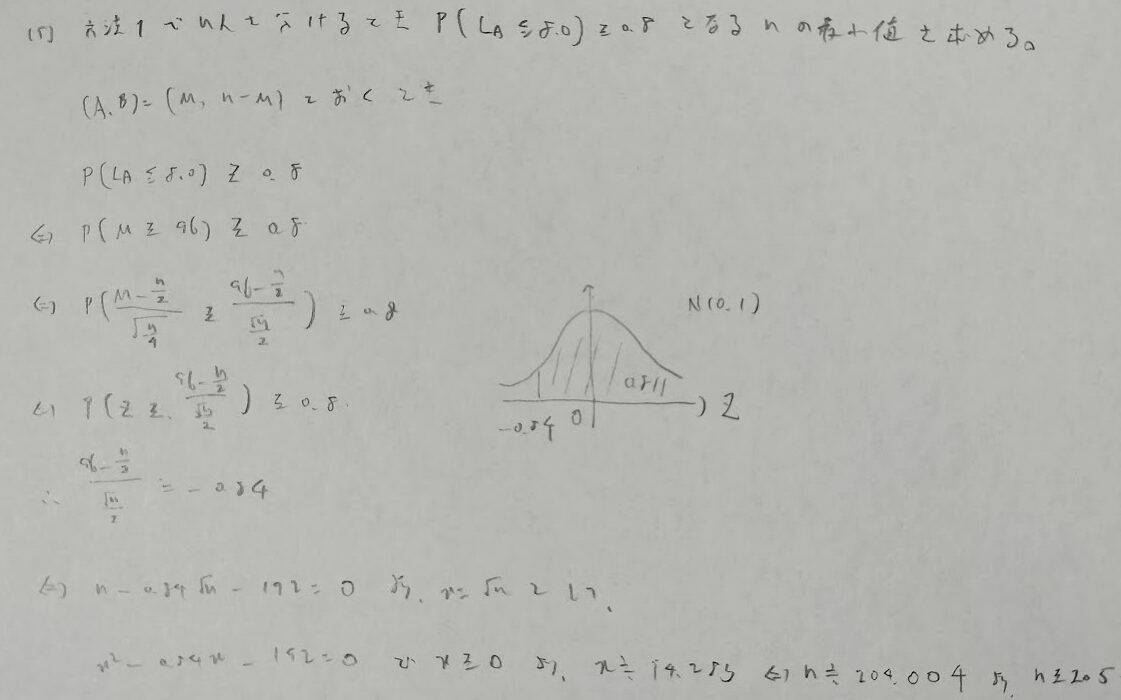 (5) 方法1でn人を分けるとき P(LA ≦ 8.0) ≧ 0.8 となる n の最小値を求める。
(A, B) = (M, n-M) とおくとき
P(LA ≦ 8.0) ≧ 0.8
⇔ P(M ≧ 96) ≧ 0.8
⇔ P( (M - n/2) / √(n/4) ≧ (96 - n/2) / (√n/2) ) ≧ 0.8
N(0.1)
⇔ P( Z ≧ (96 - n/2) / (√n/2) ) ≧ 0.8.
0.8//
-0.84 0 Z
∴ (96 - n/2) / (√n/2) = -0.84
⇔ n - 0.84√n - 192 = 0 より, x = √n として,
x² - 0.84x - 192 = 0 で x ≧ 0 より, x ≒ 14.283 ⇔ n ≒ 204.004 より n ≧ 205